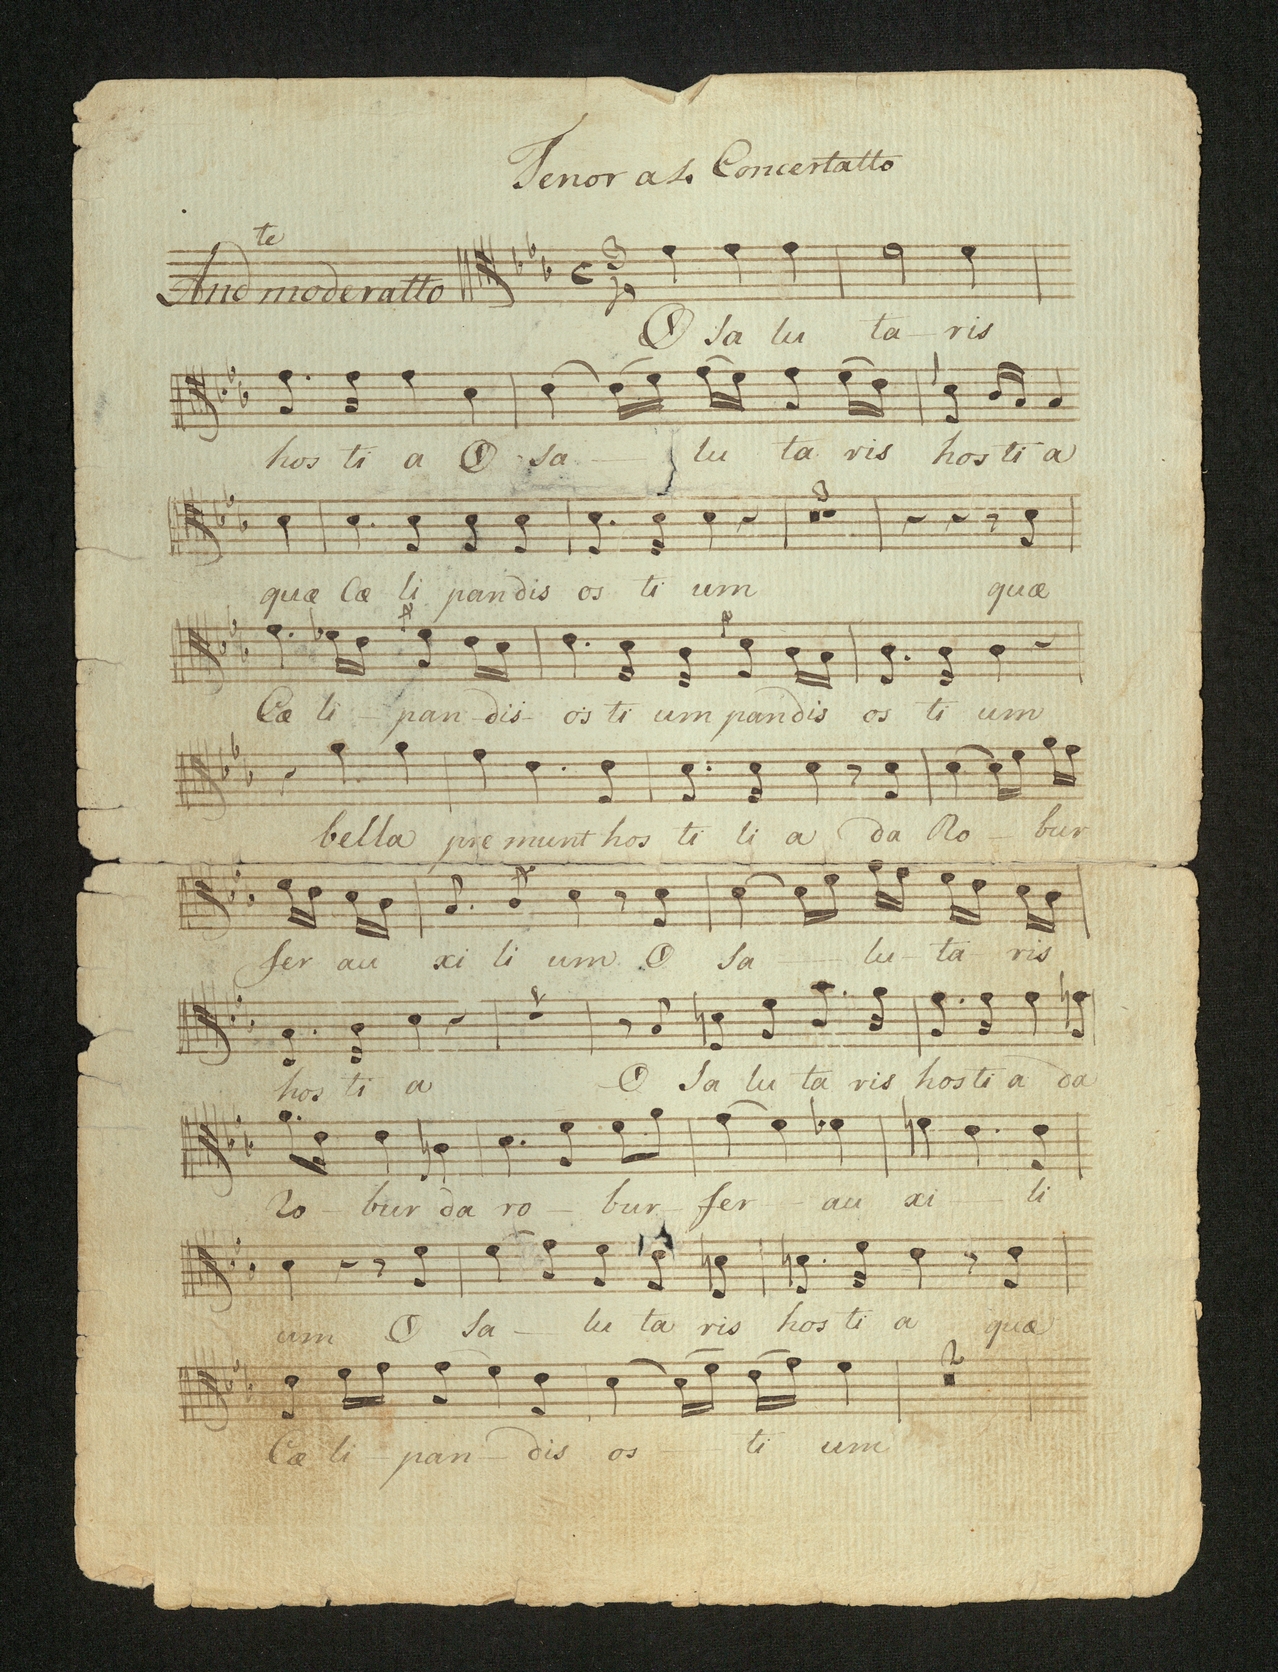 Tenor a 4. Concertatto
And.te moderatto
O Sa lu ta - ris
hos ti a O Sa - lu ta ris hos ti a
quæ Cæ li pandis os ti um quæ
Cæ li - pan - dis - os ti um pandis os ti um
bella pre munt hos ti li a da Ro - bur
fer au xi li um O Sa - lu - ta ris
hos ti a O Sa lu ta ris hos ti a da
Ro - bur da ro - bur - fer - au xi - li
um O Sa - lu ta ris hos ti a quæ
Cæ li - pan - dis os - ti um